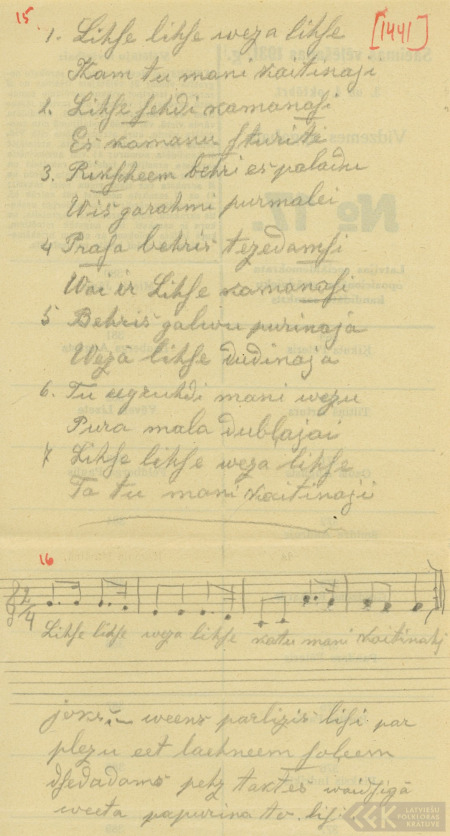 15.
[1441]
1. Lihſe lihſe weza lihſe
Kam tu mani kaitinaji
2. Lihſe ſehdi kamanaſi
Es kamanu ſturiti
3. Rikſcheem behri es palaidu
Wis garahmi purmalei
4 Praſa behris tezedamſi
Wai ir Lihſe kamanaſi
5 Behris galwu purinaja
Weza lihſe dudinaja
6. Tu eegruhdi mani wezu
Pura mala dubļajai
7 Lihſe lihſe weza lihſe
Ta tu mani kaitinaji
16
2/4
Lihſe lihſe weza lihſe katu mani kaitinahj
joks weens parlizis liſi par
plezu eet laehneem ſoļeem
dſedadams pehz taktes waidſigā
weeta papurina to liſi
LATVIEŠU
FOLKLORAS
KRĀTUVE